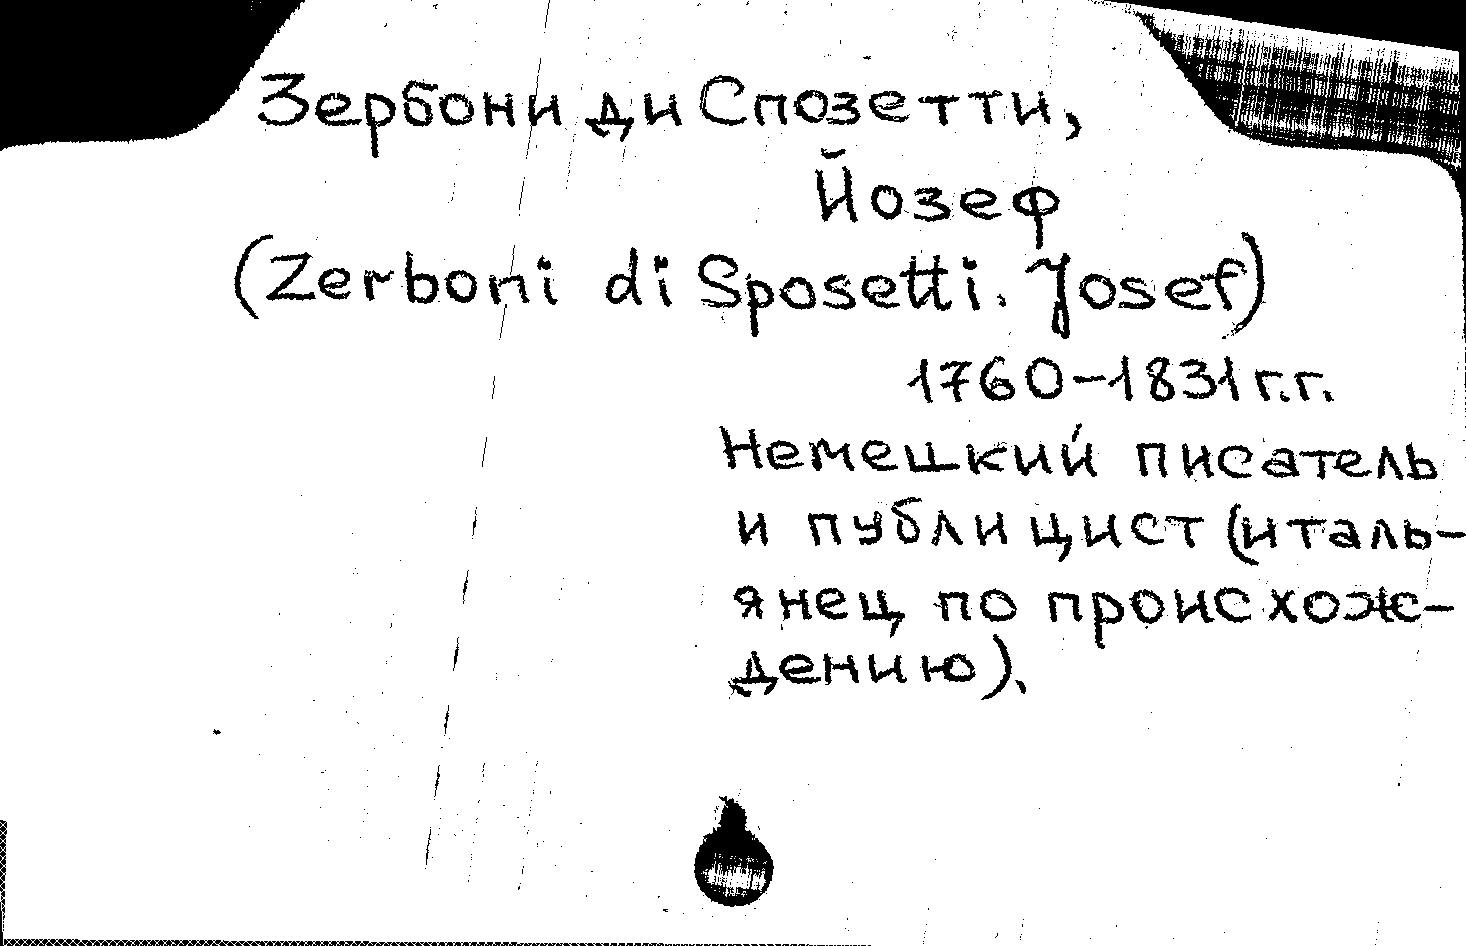 Зербони ди Спозетти,
Йозеф
(Zerboni di Sposetti. Josef)
1760-1831 г.г.
Немецкий писатель
и публицист (италь-
янец по происхож-
дению).